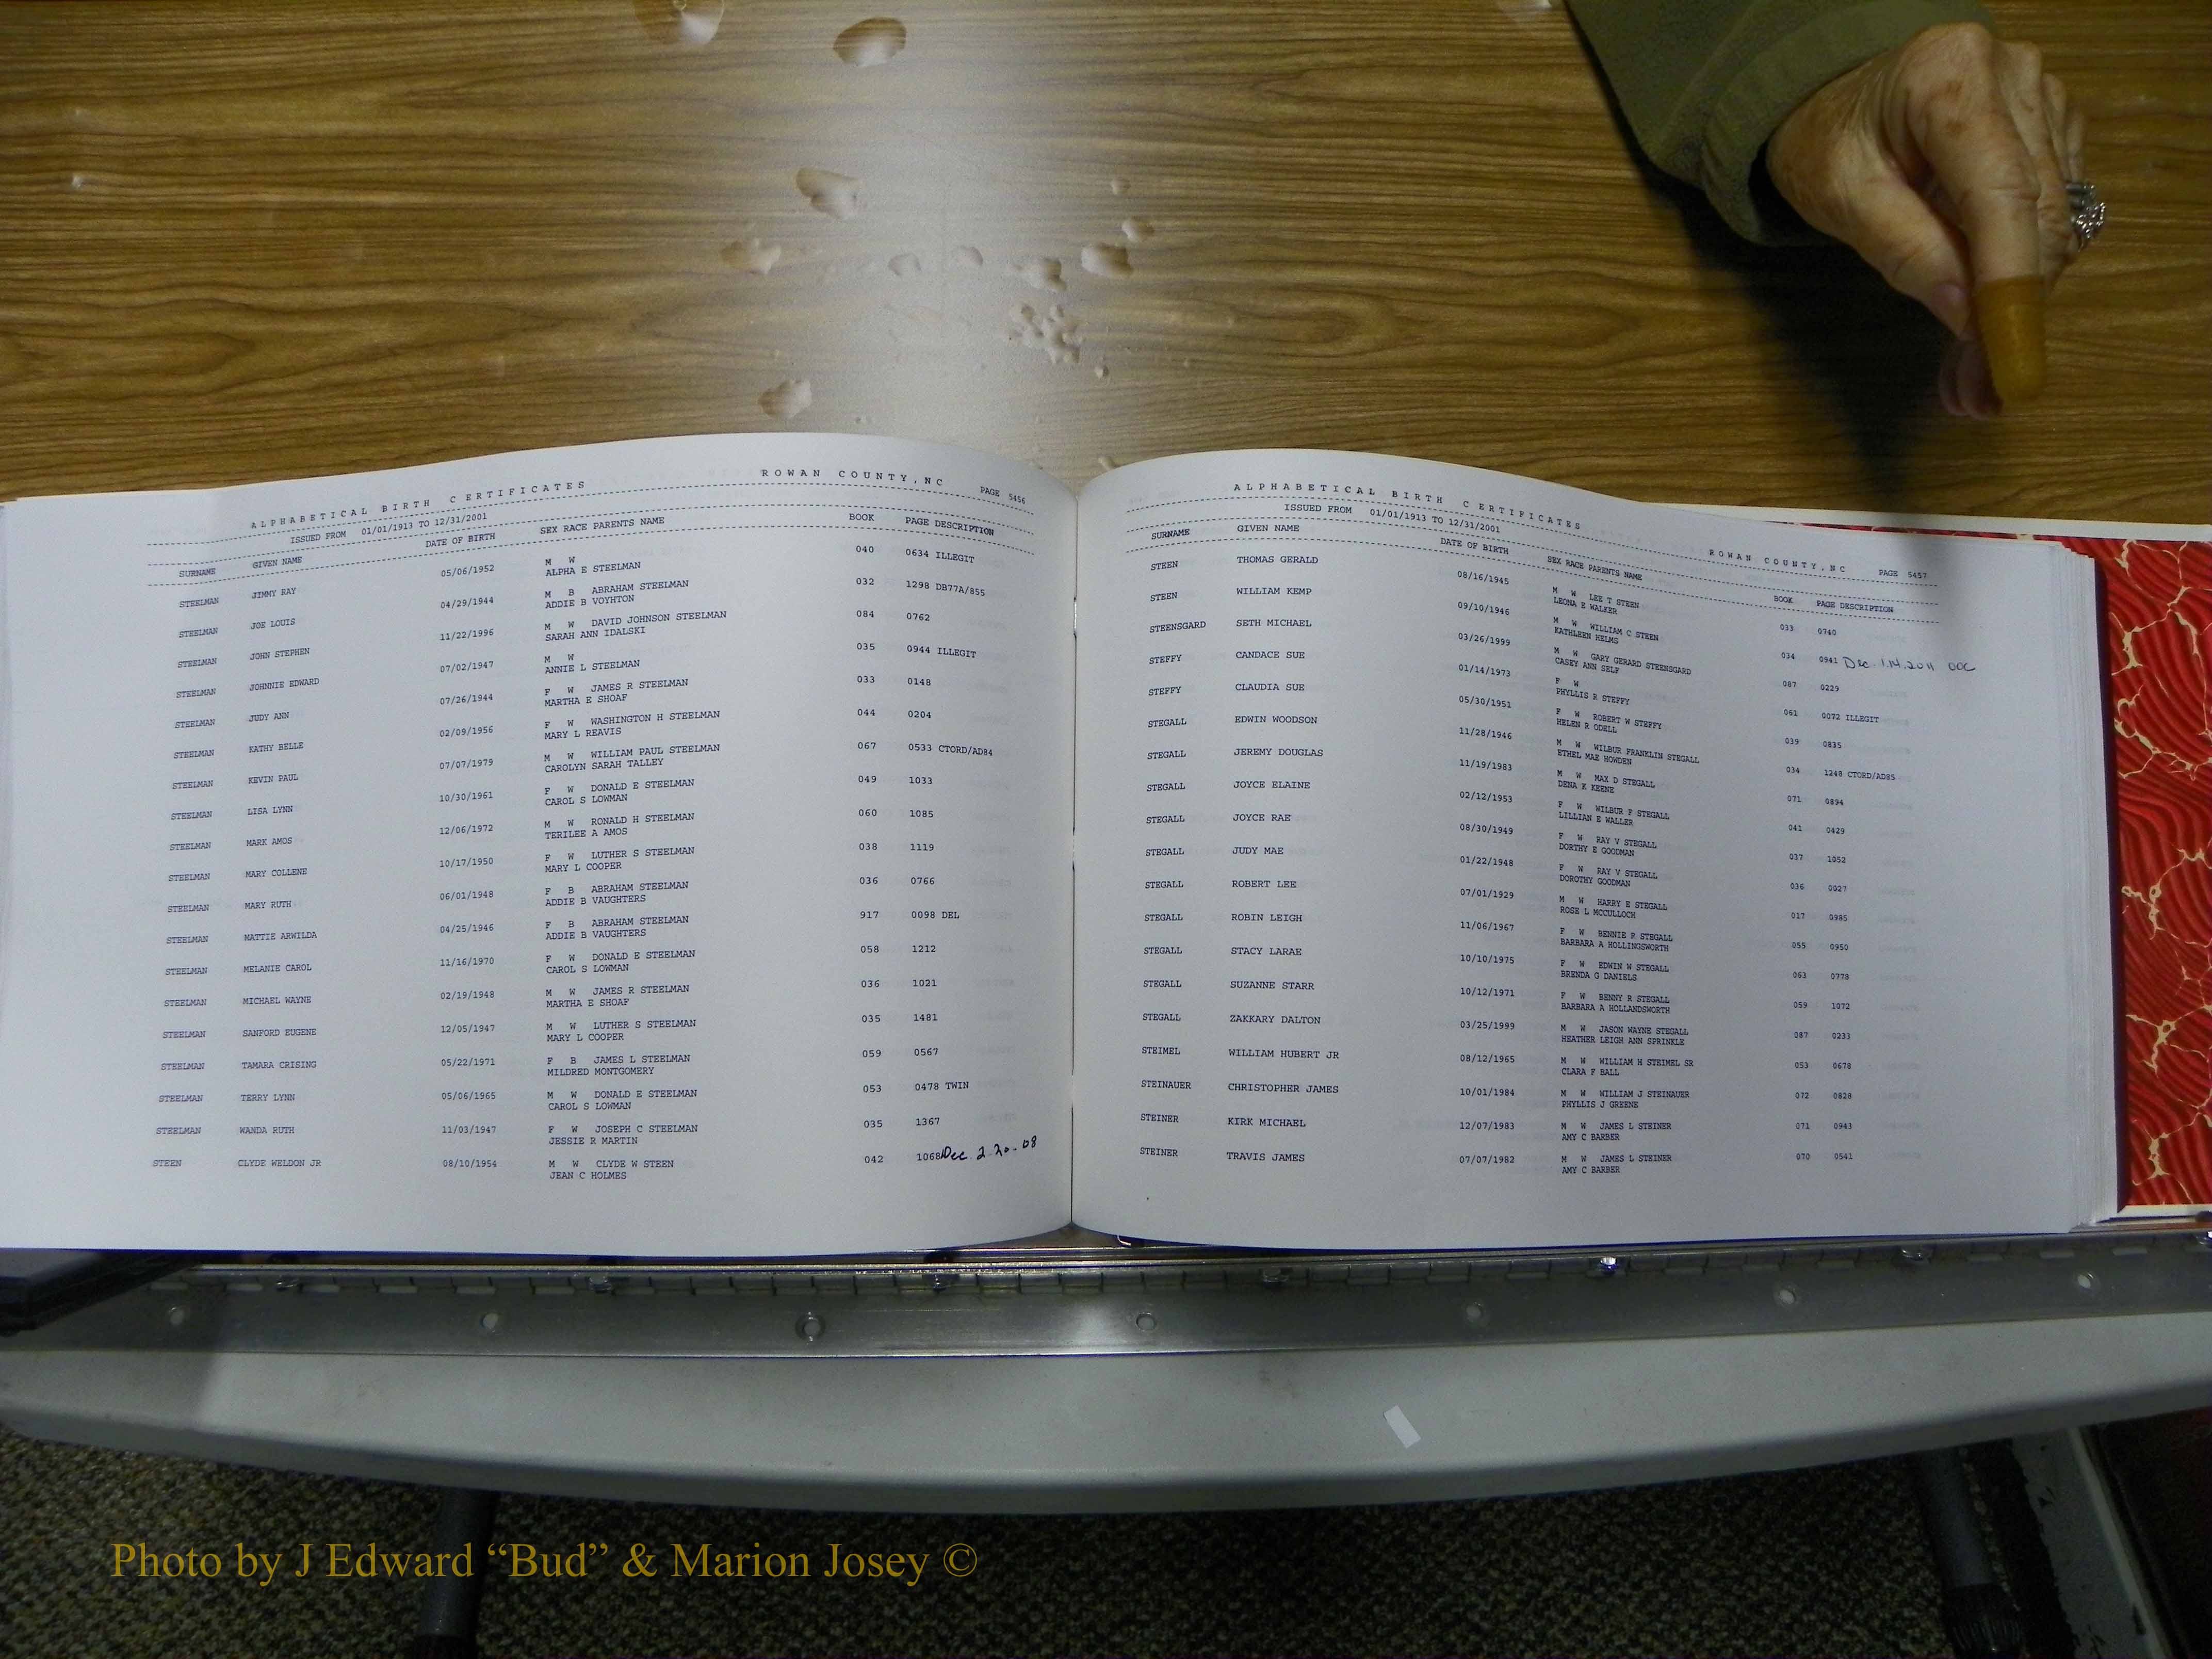 ALPHABETICAL BIRTH CERTIFICATES ROWAN COUNTY, NC PAGE 5456
ISSUED FROM 01/01/1913 TO 12/31/2001
SURNAME GIVEN NAME DATE OF BIRTH SEX RACE PARENTS NAME BOOK PAGE DESCRIPTION
STEELMAN JIMMY RAY 05/06/1952 M W 040 0634 ILLEGIT
ALPHA E STEELMAN
STEELMAN JOE LOUIS 04/29/1944 M B ABRAHAM STEELMAN 032 1298 DB77A/855
ADDIE B VOYHTON
STEELMAN JOHN STEPHEN 11/22/1996 M W DAVID JOHNSON STEELMAN 084 0762
SARAH ANN IDALSKI
STEELMAN JOHNNIE EDWARD 07/02/1947 M W 035 0944 ILLEGIT
ANNIE L STEELMAN
STEELMAN JUDY ANN 07/26/1944 F W JAMES R STEELMAN 033 0148
MARTHA E SHOAF
STEELMAN KATHY BELLE 02/09/1956 F W WASHINGTON H STEELMAN 044 0204
MARY L REAVIS
STEELMAN KEVIN PAUL 07/07/1979 M W WILLIAM PAUL STEELMAN 067 0533 CTORD/AD84
CAROLYN SARAH TALLEY
STEELMAN LISA LYNN 10/30/1961 F W DONALD E STEELMAN 049 1033
CAROL S LOWMAN
STEELMAN MARK AMOS 12/06/1972 M W RONALD H STEELMAN 060 1085
TERILEE A AMOS
STEELMAN MARY COLLENE 10/17/1950 F W LUTHER S STEELMAN 038 1119
MARY L COOPER
STEELMAN MARY RUTH 06/01/1948 F B ABRAHAM STEELMAN 036 0766
ADDIE B VAUGHTERS
STEELMAN MATTIE ARWILDA 04/25/1946 F B ABRAHAM STEELMAN 917 0098 DEL
ADDIE B VAUGHTERS
STEELMAN MELANIE CAROL 11/16/1970 F W DONALD E STEELMAN 058 1212
CAROL S LOWMAN
STEELMAN MICHAEL WAYNE 02/19/1948 M W JAMES R STEELMAN 036 1021
MARTHA E SHOAF
STEELMAN SANFORD EUGENE 12/05/1947 M W LUTHER S STEELMAN 035 1481
MARY L COOPER
STEELMAN TAMARA CRISING 05/22/1971 F B JAMES L STEELMAN 059 0567
MILDRED MONTGOMERY
STEELMAN TERRY LYNN 05/06/1965 M W DONALD E STEELMAN 053 0478 TWIN
CAROL S LOWMAN
STEELMAN WANDA RUTH 11/03/1947 F W JOSEPH C STEELMAN 035 1367
JESSIE R MARTIN
STEEN CLYDE WELDON JR 08/10/1954 M W CLYDE W STEEN 042 1068 Dec. 2.20.-08
JEAN C HOLMES
ALPHABETICAL BIRTH CERTIFICATES ROWAN COUNTY, NC PAGE 5457
ISSUED FROM 01/01/1913 TO 12/31/2001
SURNAME GIVEN NAME DATE OF BIRTH SEX RACE PARENTS NAME BOOK PAGE DESCRIPTION
STEEN THOMAS GERALD 08/16/1945 M W LEE T STEEN 033 0740
LEONA E WALKER
STEEN WILLIAM KEMP 09/10/1946 M W WILLIAM C STEEN 034 0941 Dec. 1.14.2011 DOC
KATHLEEN HELMS
STEENSGARD SETH MICHAEL 03/26/1999 M W GARY GERARD STEENSGARD 087 0229
CASEY ANN SELF
STEFFY CANDACE SUE 01/14/1973 F W 061 0072 ILLEGIT
PHYLLIS R STEFFY
STEFFY CLAUDIA SUE 05/30/1951 F W ROBERT W STEFFY 039 0835
HELEN R ODELL
STEGALL EDWIN WOODSON 11/28/1946 M W WILBUR FRANKLIN STEGALL 034 1248 CTORD/AD85
ETHEL MAE HOWDEN
STEGALL JEREMY DOUGLAS 11/19/1983 M W MAX D STEGALL 071 0894
DENA K KEENE
STEGALL JOYCE ELAINE 02/12/1953 F W WILBUR F STEGALL 041 0429
LILLIAN E WALLER
STEGALL JOYCE RAE 08/30/1949 F W RAY V STEGALL 037 1052
DORTHY E GOODMAN
STEGALL JUDY MAE 01/22/1948 F W RAY V STEGALL 036 0027
DOROTHY GOODMAN
STEGALL ROBERT LEE 07/01/1929 M W HARRY E STEGALL 017 0985
ROSE L MCCULLOCH
STEGALL ROBIN LEIGH 11/06/1967 F W BENNIE R STEGALL 055 0950
BARBARA A HOLLINGSWORTH
STEGALL STACY LARAE 10/10/1975 F W EDWIN W STEGALL 063 0778
BRENDA G DANIELS
STEGALL SUZANNE STARR 10/12/1971 F W BENNY R STEGALL 059 1072
BARBARA A HOLLANDSWORTH
STEGALL ZAKKARY DALTON 03/25/1999 M W JASON WAYNE STEGALL 087 0233
HEATHER LEIGH ANN SPRINKLE
STEIMEL WILLIAM HUBERT JR 08/12/1965 M W WILLIAM H STEIMEL SR 053 0678
CLARA F BALL
STEINAUER CHRISTOPHER JAMES 10/01/1984 M W WILLIAM J STEINAUER 072 0828
PHYLLIS J GREENE
STEINER KIRK MICHAEL 12/07/1983 M W JAMES L STEINER 071 0943
AMY C BARBER
STEINER TRAVIS JAMES 07/07/1982 M W JAMES L STEINER 070 0541
AMY C BARBER
Photo by J Edward “Bud” & Marion Josey ©